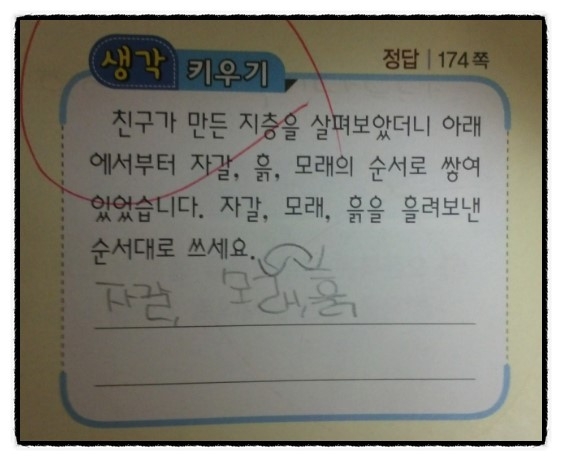 생각 키우기
정답 | 174쪽
친구가 만든 지층을 살펴보았더니 아래
에서부터 자갈, 흙, 모래의 순서로 쌓여
있었습니다. 자갈, 모래, 흙을 흘려보낸
순서대로 쓰세요.
자갈, 모래, 흙